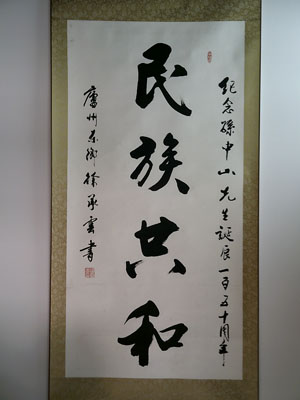 纪念孙中山先生诞辰一百五十周年
民族共和
庐州东乡徐承云书